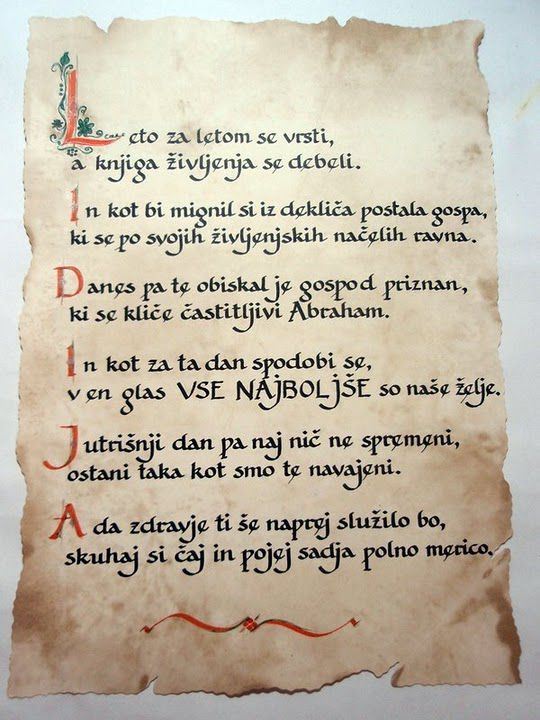 Leto za letom se vrsti,
a knjiga življenja se debeli.
In kot bi mignil si iz dekliča postala gospa,
ki se po svojih življenjskih načelih ravna.
Danes pa te obiskal je gospod priznan,
ki se kliče častitljivi Abraham.
In kot za ta dan spodobi se,
v en glas VSE NAJBOLJŠE so naše želje.
Jutrišnji dan pa naj nič ne spremeni,
ostani taka kot smo te navajeni.
A da zdravje ti še naprej služilo bo,
skuhaj si čaj in pojej sadja polno merico.